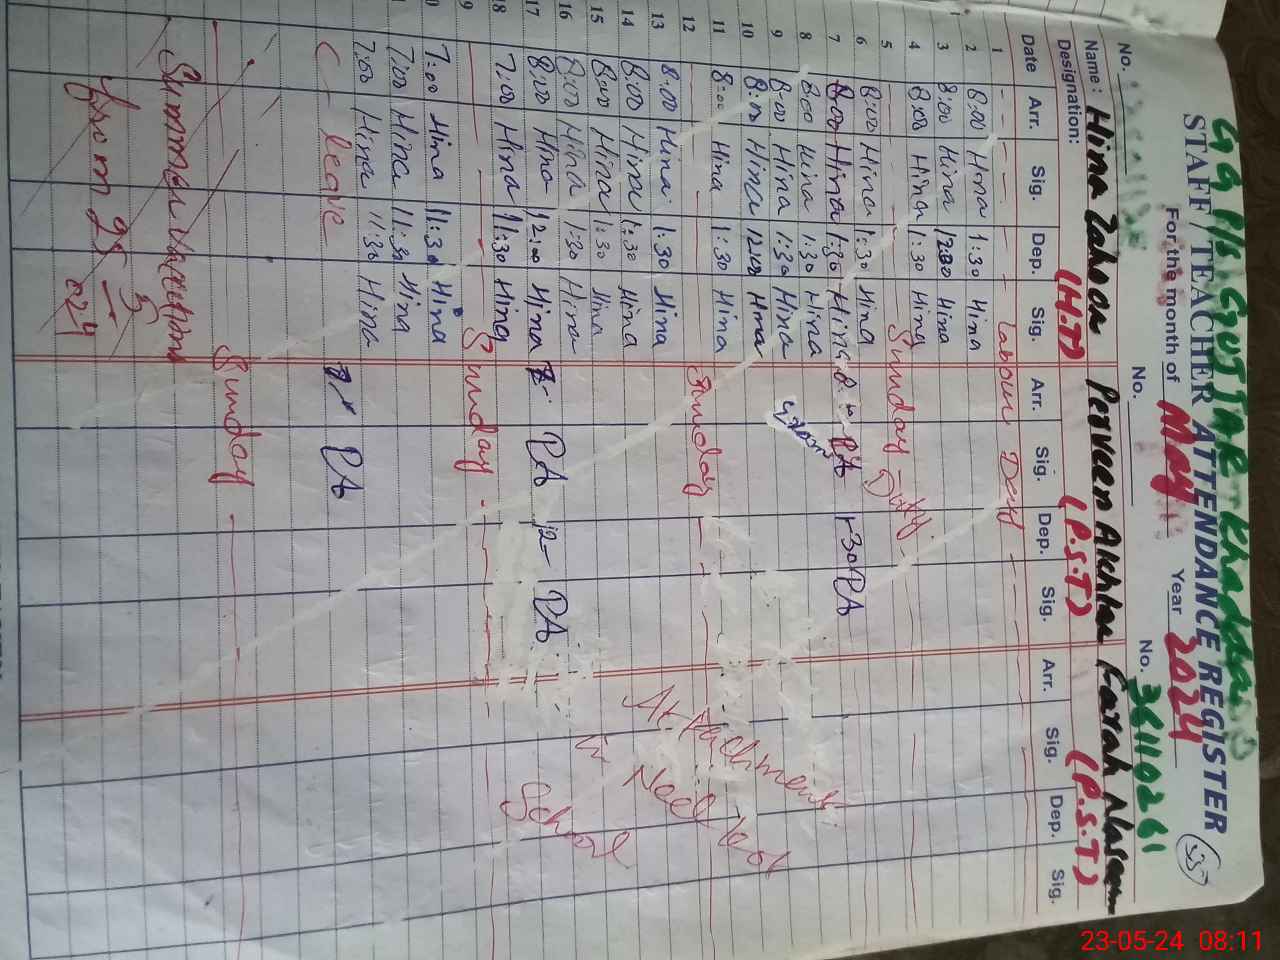 GG P/S GUJJAR Khaddar
STAFF / TEACHER ATTENDANCE REGISTER
For the month of May Year 2024
No. No. No. 36110261
Name: Hina Zahoor Perveen Akhtar Farah Naseem
Designation: (H.T) (P.S.T) (P.S.T)
Date Arr. Sig. Dep. Sig. Arr. Sig. Dep. Sig. Arr. Sig. Dep. Sig.
1 Labour Day
2 8:00 Hina 1:30 Hina
3 8:00 Hina 12:00 Hina
4 8:00 Hina 1:30 Hina
5 Sunday
6 8:00 Hina 1:30 Hina
7 8:00 Hina 1:30 Hina 8 PA 1-30 PA
8 8:00 Hina 1:30 Hina
9 8:00 Hina 1:30 Hina
10 8:00 Hina 12:00 Hina
11 8:00 Hina 1:30 Hina
12 Sunday
13 8:00 Hina 1:30 Hina
14 8:00 Hina 1:30 Hina
15 8:00 Hina 1:30 Hina
16 8:00 Hina 1:30 Hina
17 8:00 Hina 12:00 Hina PA 12- PA
18 7:00 Hina 11:30 Hina
9 Sunday
7:00 Hina 11:30 Hina
7:00 Hina 11:30 Hina
7:00 Hina 11:30 Hina
leave PA
Sunday
Summer Vacations
from 25-5
024
At.tachment
in Neel kot
School
23-05-24 08:11